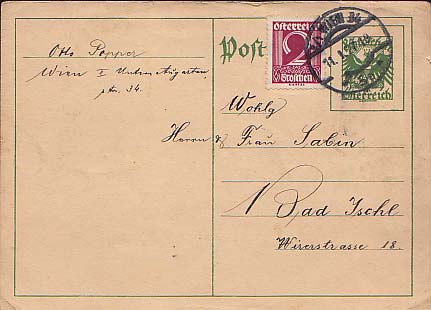 Otto Popper
Wien I Untere Augarten
str. 34.
Post
Österrei
2
Groschen
WIEN 34
Österreich
Wohlg
Herrn & Frau Sabin
Bad Ischl
Wirerstrasse 18.